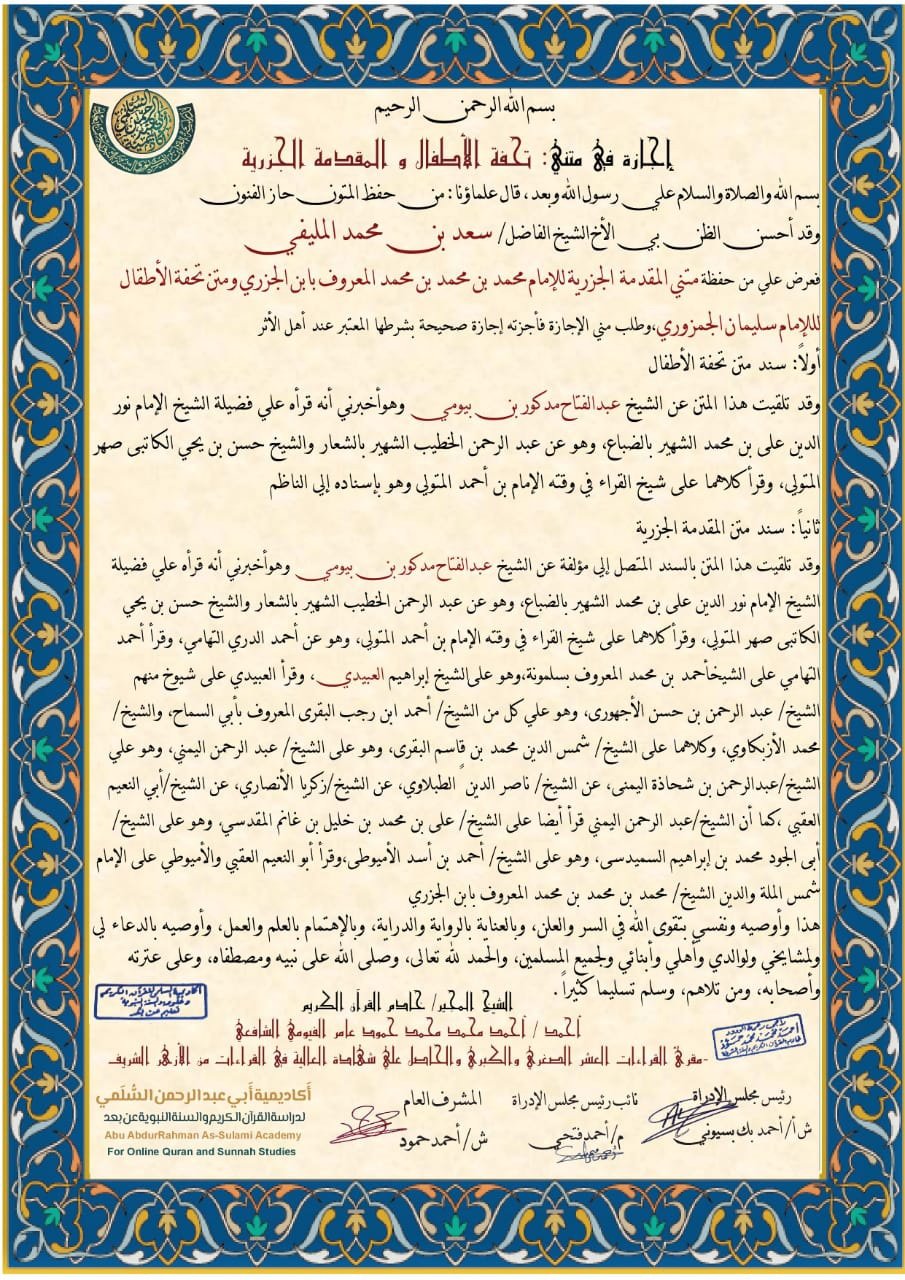 بسم الله الرحمن الرحيم
إجازة في متني: تحفة الأطفال و المقدمة الجزرية
بسم الله والصلاة والسلام علي رسول الله وبعد، قال علماؤنا: من حفظ المتون حاز الفنون
وقد أحسن الظن بي الأخ الشيخ الفاضل/ سعد بن محمد المليفي
فعرض علي من حفظة متني المقدمة الجزرية للإمام محمد بن محمد بن محمد المعروف بابن الجزري ومتن تحفة الأطفال
لللإمام سليمان الجمزوري،وطلب مني الإجازة فأجزته إجازة صحيحة بشرطها المعتبر عند أهل الأثر
أولاً: سند متن تحفة الأطفال
وقد تلقيت هذا المتن عن الشيخ عبدالفتاح مدكور بن بيومي وهوأخبرني أنه قرأه علي فضيلة الشيخ الإمام نور
الدين على بن محمد الشهير بالضباع، وهو عن عبد الرحمن الخطيب الشهير بالشعار والشيخ حسن بن يحي الكاتبى صهر
المتولي، وقرأ كلاهما على شيخ القراء في وقته الإمام بن أحمد المتولي وهو بإسناده إلي الناظم
ثانياً: سند متن المقدمة الجزرية
وقد تلقيت هذا المتن بالسند المتصل إلي مؤلفة عن الشيخ عبدالفتاح مدكور بن بيومي وهوأخبرني أنه قرأه علي فضيلة
الشيخ الإمام نور الدين على بن محمد الشهير بالضباع، وهو عن عبد الرحمن الخطيب الشهير بالشعار والشيخ حسن بن يحي
الكاتبى صهر المتولي، وقرأ كلاهما على شيخ القراء في وقته الإمام بن أحمد المتولي، وهو عن أحمد الدري التهامي، وقرأ أحمد
التهامي على الشيخأحمد بن محمد المعروف بسلمونة،وهو علىالشيخ إبراهيم العبيدي ، وقرأ العبيدي على شيوخ منهم
الشيخ/ عبد الرحمن بن حسن الأجهورى، وهو علي كل من الشيخ/ أحمد ابن رجب البقرى المعروف بأبي السماح، والشيخ/
محمد الأزبكاوي، وكلاهما على الشيخ/ شمس الدين محمد بن قاسم البقرى، وهو على الشيخ/ عبد الرحمن اليمني، وهو علي
الشيخ/عبدالرحمن بن شحاذة اليمنى، عن الشيخ/ ناصر الدين الطبلاوي، عن الشيخ/زكريا الأنصاري، عن الشيخ/أبي النعيم
العقبي ،كما أن الشيخ/عبد الرحمن اليمني قرأ أيضا على الشيخ/ على بن محمد بن خليل بن غانم المقدسي، وهو على الشيخ/
أبى الجود محمد بن إبراهيم السميدسى، وهو على الشيخ/ أحمد بن أسد الأميوطى،وقرأ أبو النعيم العقبي والأميوطي على الإمام
شمس الملة والدين الشيخ/ محمد بن محمد بن محمد المعروف بابن الجزري
هذا وأوصيه ونفسي بتقوى الله في السر والعلن، وبالعناية بالرواية والدراية، وبالإهتمام بالعلم والعمل، وأوصيه بالدعاء لي
ولمشايخي ولوالدي وأهلي وأبنائي ولجميع المسلمين، والحمد لله تعالى، وصلى الله على نبيه ومصطفاه، وعلى عترته
وأصحابه، ومن تلاهم، وسلم تسليما كثيراً.
الشيخ المجيز/ خادم القرآن الكريم
أحمد / أحمد محمد محمد حمود عامر الفيومي الشافعي
-مقرئ القراءات العشر الصغري والكبري والحاصل علي شهادة العالية في القراءات من الأزهر الشريف
رئيس مجلس الإدراة نائب رئيس مجلس الإدراة المشرف العام
ش/أ/ أحمد بك بسيوني م/أحمد فتحي ش/ أحمد حمود
أكاديمية أبي عبد الرحمن السُّلَمي
لدراسة القرآن الكريم والسنة النبوية عن بعد
Abu AbdurRahman As-Sulami Academy
For Online Quran and Sunnah Studies